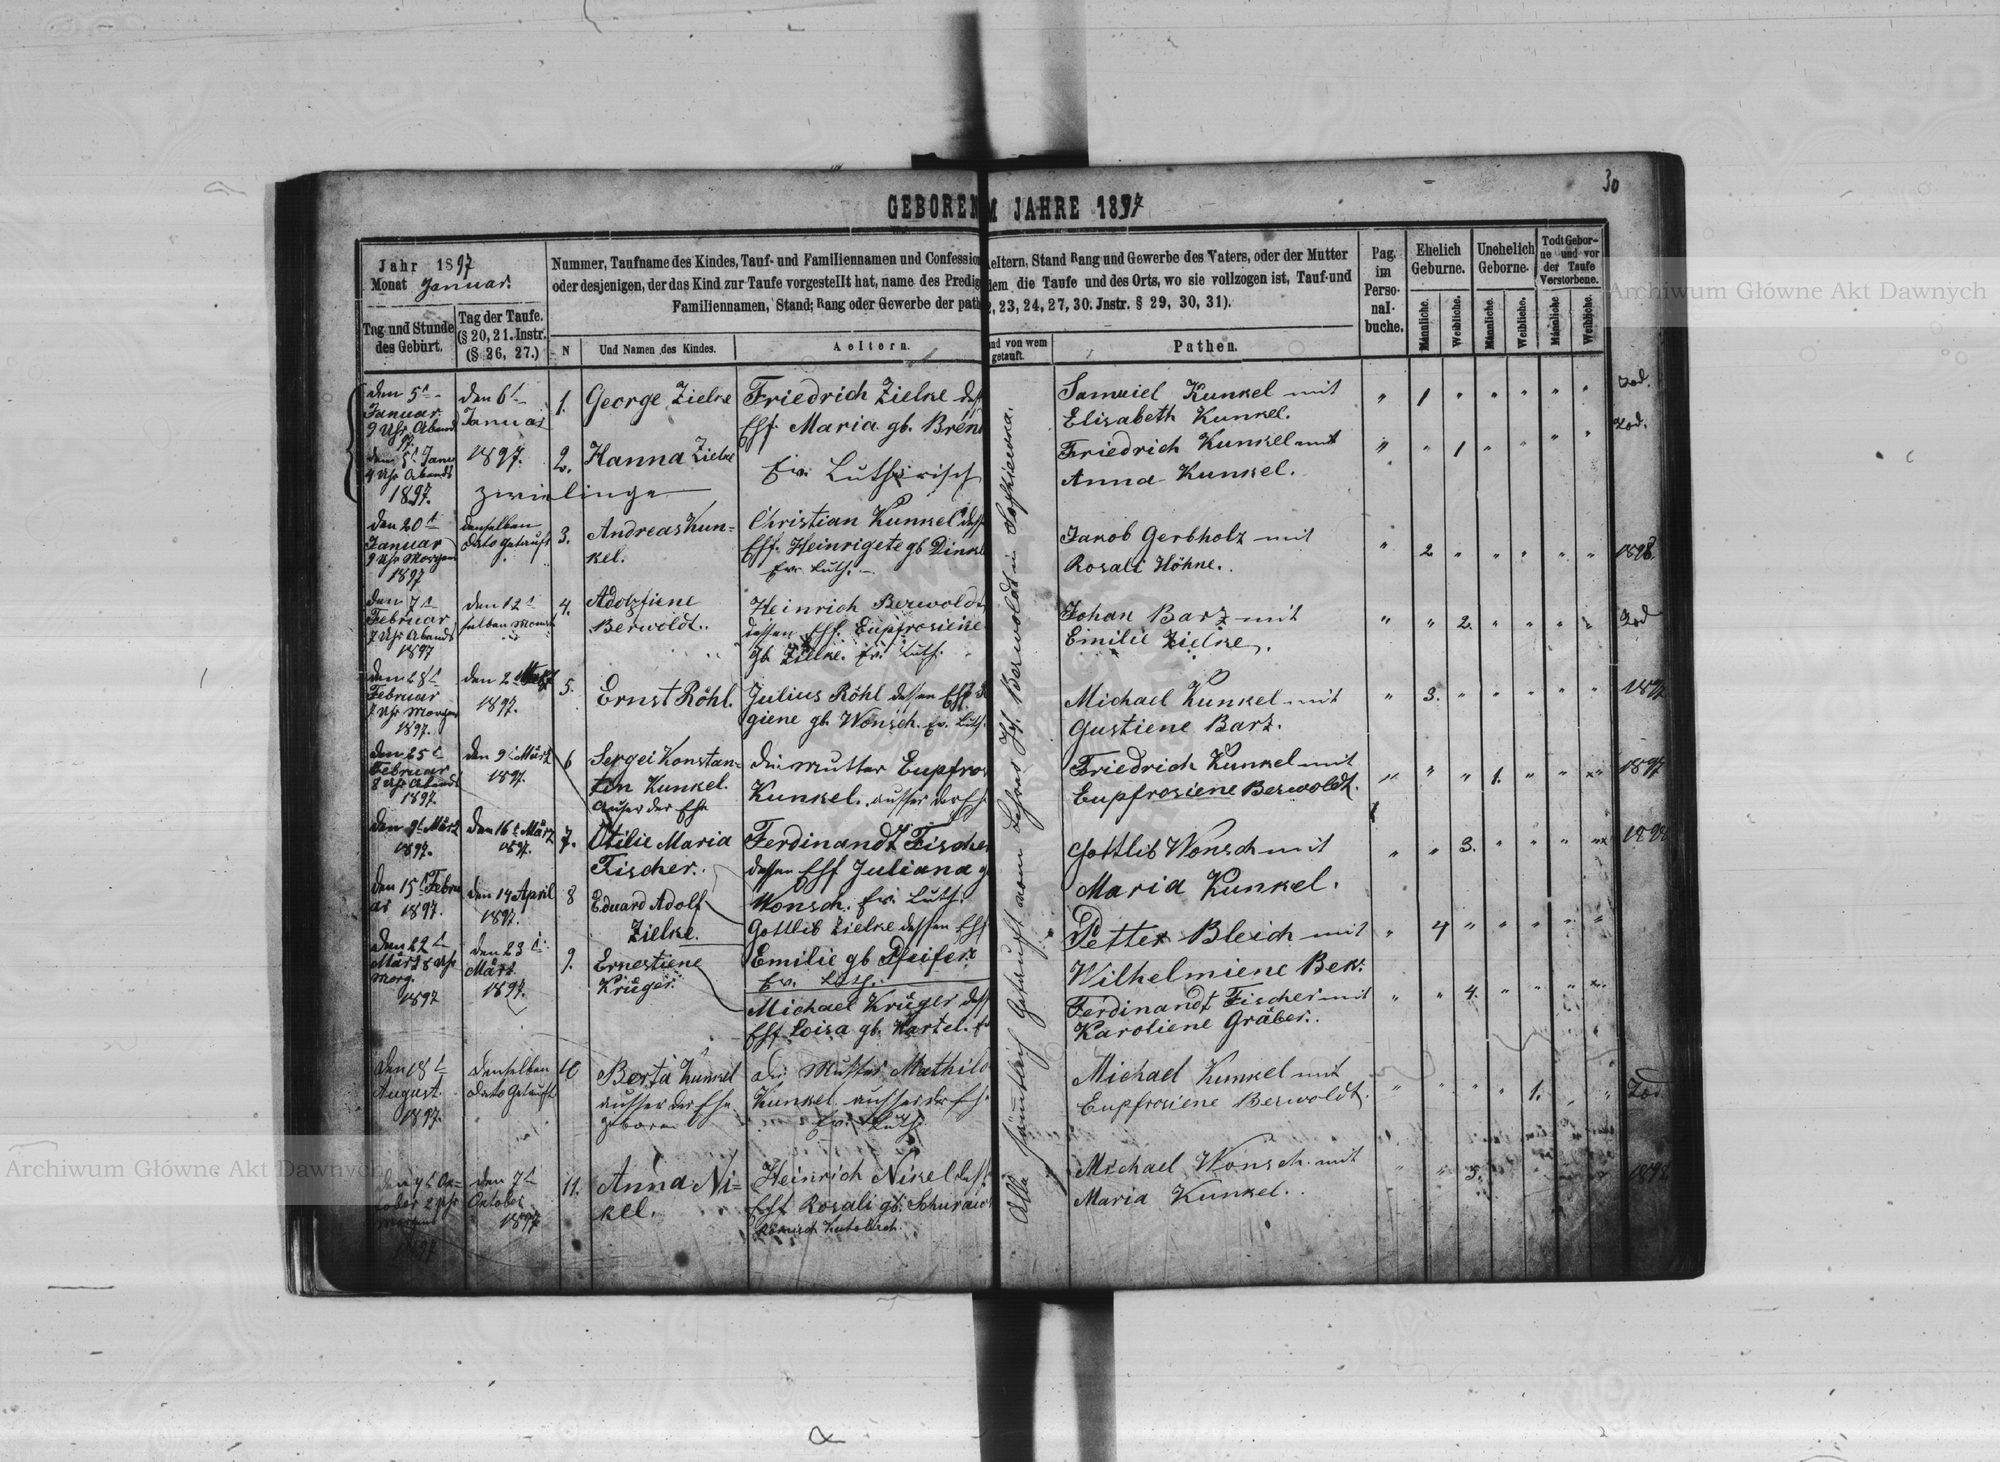 30
GEBOREN M JAHRE 1897
Jahr 1897
Monat Januar.
Nummer, Taufname des Kindes, Tauf- und Familiennamen und Confession
oder desjenigen, der das Kind zur Taufe vorgestellt hat, name des Predig
Familiennamen, Stand; Rang oder Gewerbe der path
eltern, Stand Rang und Gewerbe des Vaters, oder der Mutter
dem die Taufe und des Orts, wo sie vollzogen ist, Tauf-und
2, 23, 24, 27, 30. Jnstr. § 29, 30, 31).
Pag. im Perso- nal- buche.
Ehelich Geburne.
Unehelich Geborne.
Todt Gebor- ne und vor der Taufe Verstorbene.
Männliche. Weibliche. Männliche. Weibliche. Männliche Weibliche.
Tag und Stunde des Geburt.
Tag der Taufe. (§ 20, 21. Instr. (§ 26, 27.)
N
Und Namen des Kindes.
Aeltern.
und von wem getauft.
Pathen.
den 5t Januar 9 Uhr Abend
den 6t Januar 1897.
1. George Zielke
Friedrich Zielke
Eff. Maria gb.
Samuiel Kunkel mit
Elisabeth Kunkel.
1
Tod.
4 Uhr Abends 1897.
2. Hanna Zielke
zwielinge
Ev. Lutherisch
Friedrich Kunkel mit
Anna Kunkel.
1
Tod.
den 20t Januar 9 Uhr Morgen 1897
denselben Dato getauft
3. Andreas Kun=
kel.
Christian Kunkel
Eff. Heinrigete gb Dink
Ev. Luth.
Jakob Gerbholz mit
Rosali Höhne.
2
1898
den 7t Februar 7 Uhr Abends 1897
den 12t
4. Adolzfiene
Berwoldt.
Heinrich Berwold
dessen Eff. Eupfrosiene
gb. Zielke. Ev. Luth.
Johan Barz mit
Emilie Zielke.
2
Tod
den 28t Februar 7 Uhr Morgen 1897.
den 2t 1897.
5. Ernst Röhl.
Julius Röhl dessen Eff.
giene gb. Wonsch. Ev. Luth.
Michael Kunkel mit
Gustiene Barz.
3.
1897
den 25t Februar 8 Uhr Abends 1897
den 9t März 1897.
6 Sergei Konstan=
tin Kunkel.
auser der Ehe
die Mutter Eupfros
Kunkel. ausser der Eh
Friedrich Kunkel mit
Eupfrosiene Berwoldt.
1.
1897
den 9t März 1897.
den 16t März 1897.
7. Otilie Maria
Fischer.
Ferdinandt Fischer
dessen Eff Juliana g
Wonsch. Ev. Luth.
Gottlib Wonsch mit
Maria Kunkel.
3.
den 15t Febru ar 1897.
den 14 April 1897.
8 Eduard Adolf
Zielke.
Gottlib Zielke dessen Eff
Emilie gb Pfeifer
Ev. Luth.
Petter Bleich mit
Wilhelmiene Bek.
4
den 22t März 8 Uhr Morg. 1897
den 23t März 1897.
9. Ernestiene
Krüger.
Michael Krüger
Eff Loisa gb. Hartel.
Ferdinandt Fischer mit
Karoliene Gräber.
4.
den 18t August 1897.
denselben Dato Getauft
10 Berta Kunkel
ausser der Ehe
geboren
die Mutter Mathild
Kunkel ausser der Eh.
Ev. Luth.
Michael Kunkel mit
Eupfrosiene Berwoldt.
1.
Tod
1897
den 7t Oktober 1897
11. Anna Ni=
kel.
Heinrich Nikel
Eff Rosali gb.
Römisch Katolisch.
Michael Wonsch mit
Maria Kunkel.
1898
Alle Sämtlich Getauft vom Lehrer Berwoldt in
Archiwum Główne Akt Dawnych
Archiwum Główne Akt Dawnych